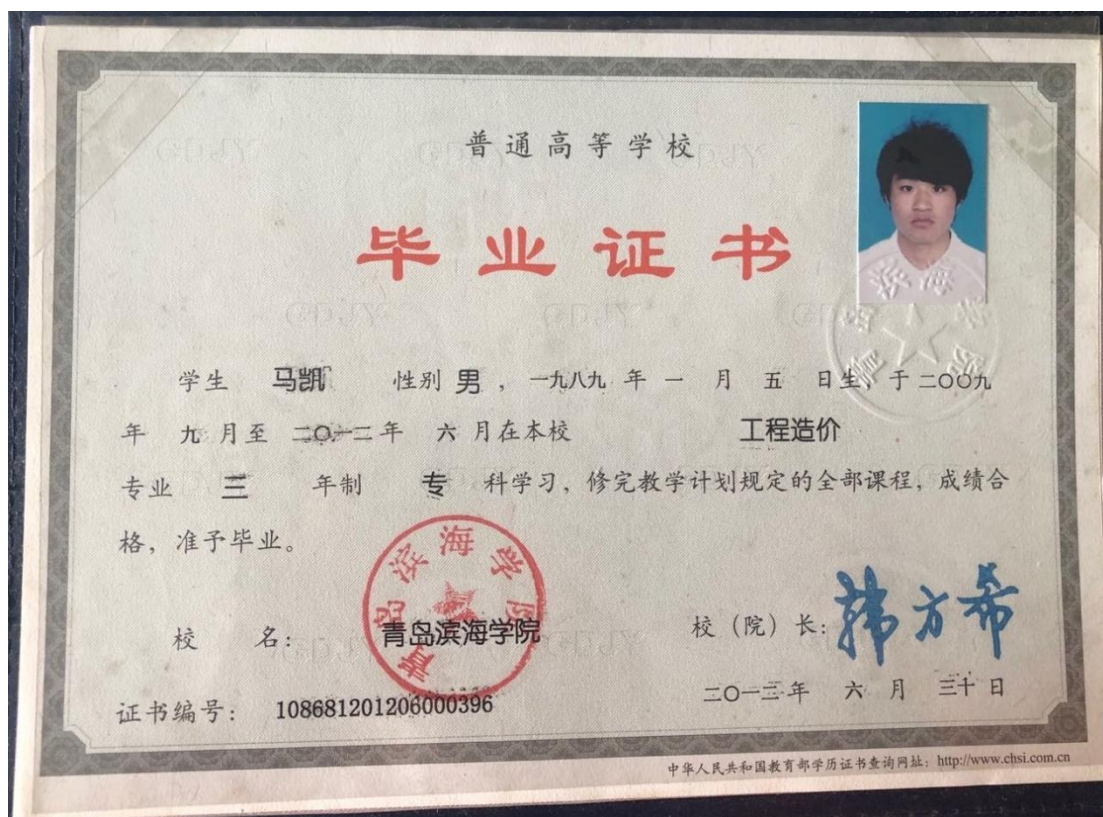 普通高等学校
毕业证书
学生 马凯 性别 男 ，一九八九 年 一 月 五 日生，于二〇〇九
年 九 月至 二〇一二年 六 月在本校 工程造价
专业 三 年制 专 科学习，修完教学计划规定的全部课程，成绩合
格，准予毕业。
青岛滨海学院
校 名： 青岛滨海学院
校（院）长：韩方希
证书编号： 108681201206000396
二〇一二年 六 月 三十 日
中华人民共和国教育部学历证书查询网址：http://www.chsi.com.cn